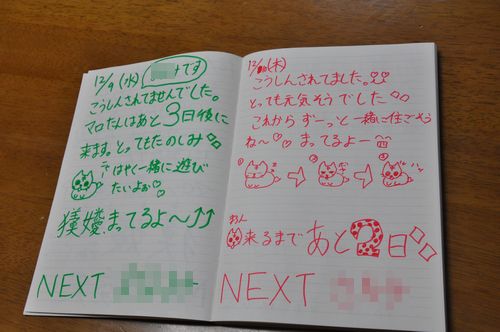 12/9(水) です
こうしんされてませんでした。
マロたんはあと3日後に
来ます。とってもたのしみ
はやく一緒に遊び
たいよぉ♡
まってるよ〜↑↑
NEXT
12/10(木)
こうしんされてました。
とっても元気そうでした
これからずーっと一緒に住ごそう
ね〜♡ まってるよー
① → ② → ③
わん
来るまであと2日
NEXT